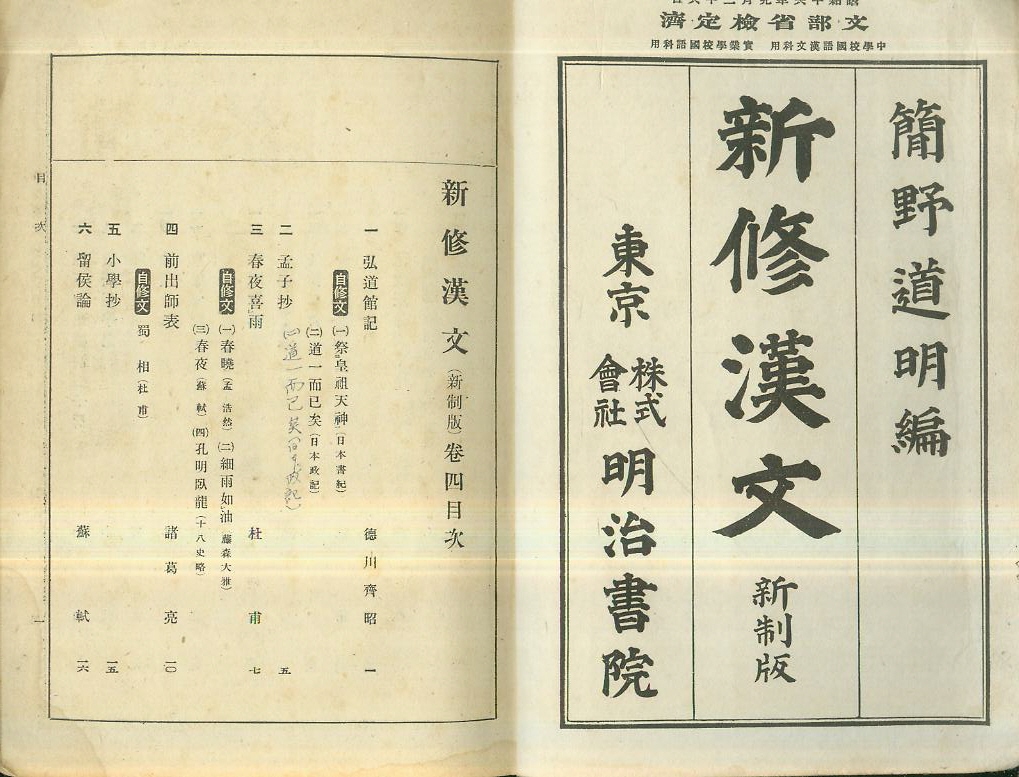 文部省檢定濟
中學校國語漢文科用 實業學校國語科用
簡野道明編
新修漢文 新制版
東京 株式會社 明治書院
新修漢文(新制版)卷四目次
一 弘道館記 德川齊昭 一
自修文 (一)祭皇祖天神(日本書紀)
(二)道一而已矣(日本政記)
二 孟子抄 五
(二)道一而已矣(日本政記)
三 春夜喜雨 杜甫 七
自修文 (一)春曉(孟浩然) (二)細雨如油(藤森大雅)
(三)春夜(蘇軾) (四)孔明臥龍(十八史略)
四 前出師表 諸葛亮 一〇
自修文 蜀相(杜甫)
五 小學抄 一五
六 留侯論 蘇軾 一六
目次 一